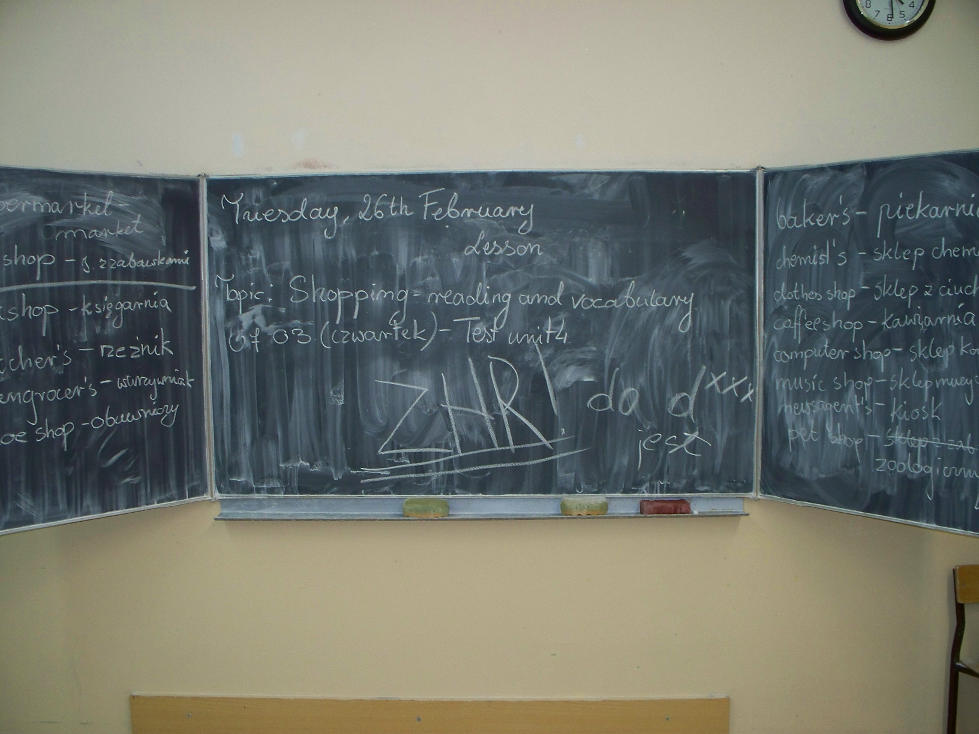 market
shop - z zabawkami
shop - księgarnia
cher's - rzeźnik
engrocer's - warzywniak
oe shop - obuwniczy
Tuesday, 26th February
Lesson
Topic: Shopping - reading and vocabulary
03 (czwartek) - Test unit 4
ZHR! do d xxx
jest
baker's - piekarni
chemist's - sklep chem
clothes shop - sklep z ciuch
coffee shop - kawiarnia
computer shop - sklep ko
music shop - sklep muzy
newsagent's - kiosk
pet shop - sklep z
zoologiczn
8 7 6 5 4